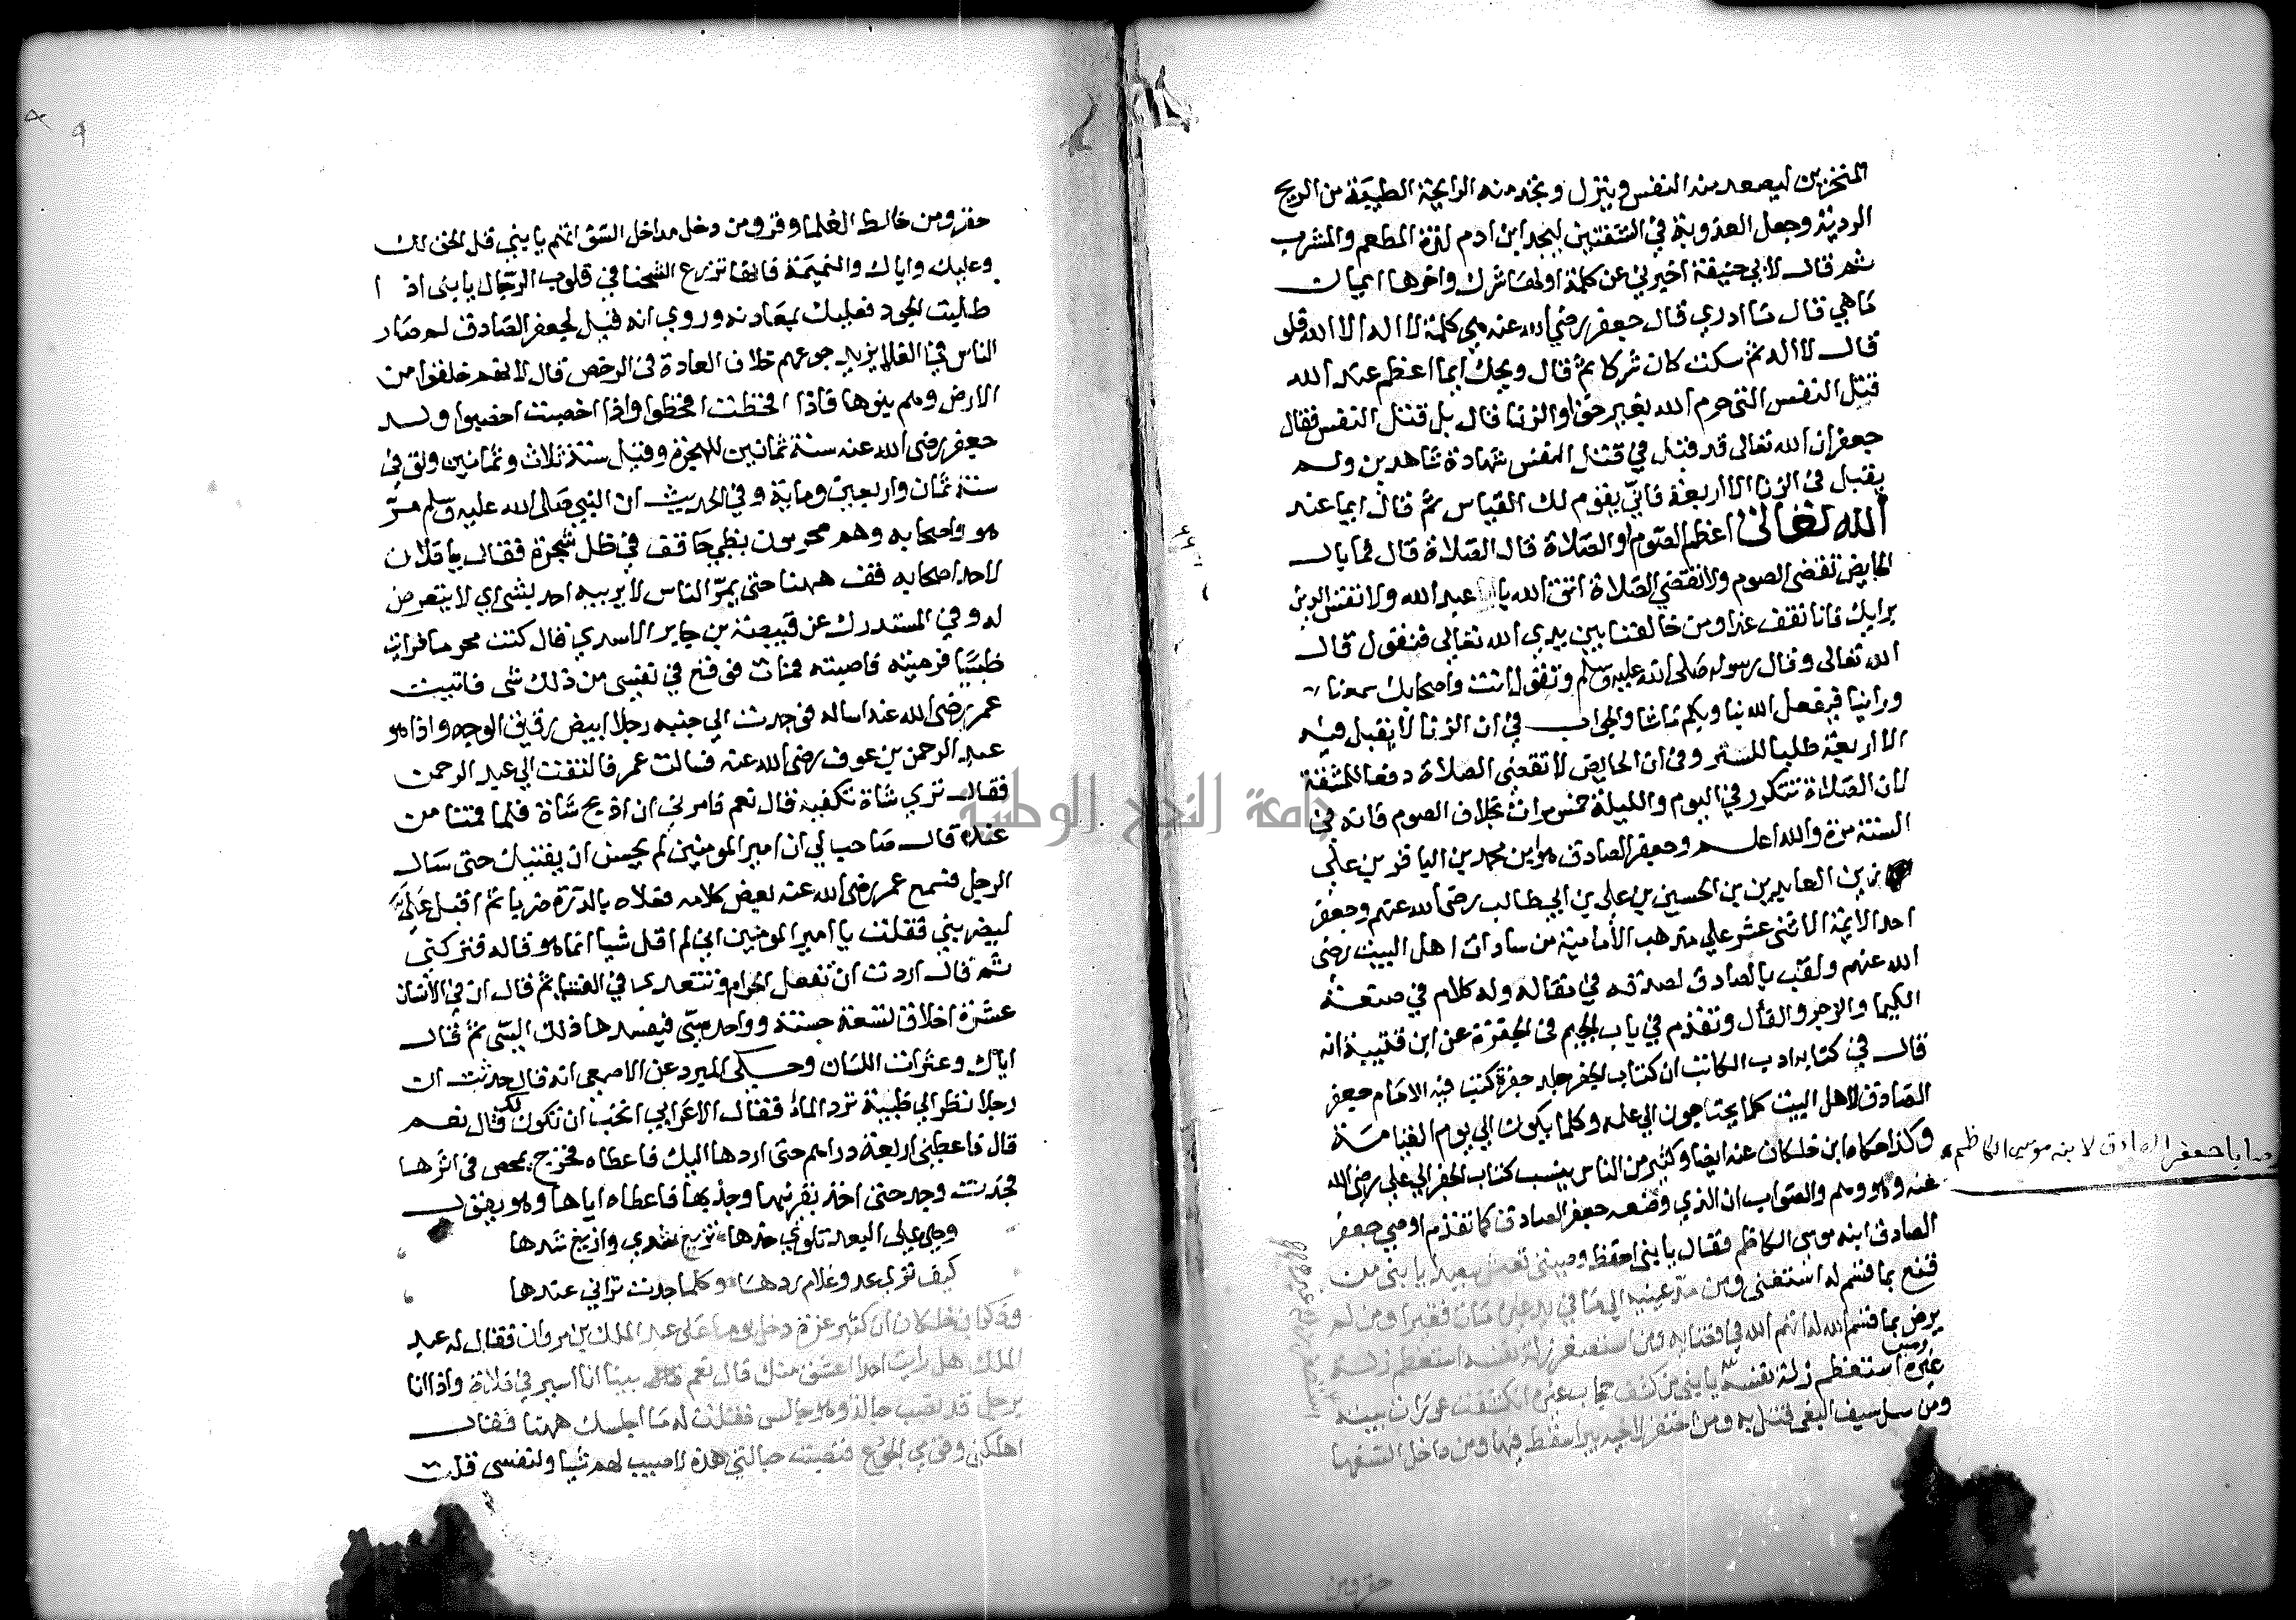 المنخزين ليصعد منه النفس وينزل ويجد منه الرايحة الطيبة من الريح
الردية وجعل العذوبة في الشفتين ليجد ابن ادم لذة المطعم والمشرب
ثم قال لابي حنيفة اخبرني عن كلمة اولها شرك واخرها ايمان
ما هي قال ما ادري قال جعفر رضي الله عنه هي كلمة لا اله الا الله فلو
قال لا اله ثم سكت كان شركا ثم قال ويحك ايما اعظم عند الله
قتل النفس التي حرم الله بغير حق او الزنا قال بل قتل النفس فقال
جعفر ان الله تعالى قد قبل في قتل النفس شهادة شاهدين ولم
يقبل في الزنا الا اربعة فانى يقوم لك القياس ثم قال ايما عند
الله تعالى اعظم الصوم او الصلاة قال الصلاة قال فما بال
الحايض تقضي الصوم ولا تقضي الصلاة اتق الله يا عبد الله ولا تقس الدين
برايك فانا نقف غدا ومن خالفنا بين يدي الله تعالى فنقول قال
الله تعالى وقال رسوله صلى الله عليه وسلم وتقول انت واصحابك سمعنا
وراينا فيفعل الله بنا وبكم ما شا والجواب في ان الزنا لا يقبل فيه
الا اربعة طلبا للستر وفي ان الحايض لا تقضي الصلاة دفعا للمشقة
لان الصلاة تتكرر في اليوم والليلة خمس مرات بخلاف الصوم فانه في
السنة مرة والله اعلم وجعفر الصادق هو ابن محمد بن الباقر بن علي
زين العابدين بن الحسين بن علي بن ابي طالب رضي الله عنهم وجعفر
احد الايمة الاثنى عشر علي مذهب الامامية من سادات اهل البيت رضي
الله عنهم ولقب بالصادق لصدقه في مقاله وله كلام في صنعة
الكيما والزجر والفأل وتقدم في باب الجيم في الجفرة عن ابن قتيبة انه
قال في كتابه ادب الكاتب ان كتاب الجفر جلد جفرة كتب فيه الامام جعفر
الصادق لاهل البيت كلما يحتاجون الي علمه وكلما يكون الي يوم القيامة
وكذا حكاه ابن خلكان عنه ايضا وكثير من الناس ينسب كتاب الجفر الي علي رضي الله
عنه وهو وهم والصواب ان الذي وضعه جعفر الصادق كما تقدم اوصي جعفر
وصايا جعفر الصادق لابنه موسى الكاظم
الصادق ابنه موسى الكاظم فقال يا بني احفظ وصيتي تعش سعيدا يا بني من
قنع بما قسم له استغنى ومن مد عينيه الي ما في يد غيره مات فقيرا ومن لم
يرض بما قسم الله له اتهم الله في قضايه ومن استصغر زلة نفسه استعظم زلة
غيره ومن استعظم زلة نفسه يا بني من كشف حجاب غيره انكشفت عورات بيته
ومن سل سيف البغي قتل به ومن احتفر لاخيه بيرا سقط فيها ومن داخل السفها
حقر ومن
حقر ومن خالط العلما وقر ومن دخل مداخل السو اتهم يا بني قل الحق لك
وعليك واياك والنميمة فانها تزرع الشحنا في قلوب الرجال يا بني اذا
طلبت الجود فعليك بمعادنه وروي انه قيل لجعفر الصادق لم صار
الناس في الغلا يزيد جوعهم خلاف العادة في الرخص قال لانهم خلقوا من
الارض وهم بنوها فاذا اقحطت اقحطوا واذا اخصبت اخصبوا ولد
جعفر رضي الله عنه سنة ثمانين للهجرة وقيل سنة ثلاث وثمانين وتوفي
سنة ثمان واربعين وماية وفي الحديث ان النبي صلى الله عليه وسلم مر
هو واصحابه وهم محرمون بظبي حاقف في ظل شجرة فقال يا فلان
لاحد اصحابه قف ههنا حتى يمر الناس لا يريبه احد بشي اي لا يتعرض
له وفي المستدرك عن قبيصة بن جابر الاسدي قال كنت محرما فرايت
ظبيا فرميته فاصبته فمات فوقع في نفسي من ذلك شي فاتيت
عمر رضي الله عنه اساله فوجدت الي جنبه رجلا ابيض رقيق الوجه واذا هو
عبد الرحمن بن عوف رضي الله عنه فسالت عمر فالتفت الي عبد الرحمن
فقال تري شاة تكفيه قال نعم فامرني ان اذبح شاة فلما قمنا من
عنده قال صاحب لي ان امير المومنين لم يحسن ان يفتيك حتى سال
الرجل فسمع عمر رضي الله عنه بعض كلامه فعلاه بالدرة ضربا ثم اقبل علي
ليضربني فقلت يا امير المومنين اني لم اقل شيا انما هو قاله فتركني
ثم قال اردت ان تفعل الحرام وتتعدى في الفتيا ثم قال ان في الانسان
عشرة اخلاق تسعة حسنة وواحد سي فيفسدها ذلك السي ثم قال
اياك وعثرات اللسان وحكى المبرد عن الاصمعي انه قال حدثت ان
رجلا نظر الي ظبية ترد الما فقال الاعرابي اتحب ان تكون لك قال نعم
قال فاعطني اربعة دراهم حتى اردها اليك فاعطاه فخرج يمحص في اثرها
فجدت وجد حتى اخذ بقرنيها وجذبها فاعطاه اياها وهو يقول
وهي على البعد تلوي خدها تزيغ شدي وازيغ شدها
كيف ترى عدو غلام ردها وكلما جدت تراني عندها
وذكر ابن خلكان ان كثير عزة دخل يوما على عبد الملك بن مروان فقال له عبد
الملك هل رايت احدا اعشق منك قال نعم بينا انا اسير في فلاة واذا انا
برجل قد نصب حبالة وهو جالس فقلت له ما اجلسك ههنا فقال
اهلكني وقومي الجوع فنصبت حبالتي هذه لاصيب لهم شيا ولنفسي قلت
جامعة النجاح الوطنية